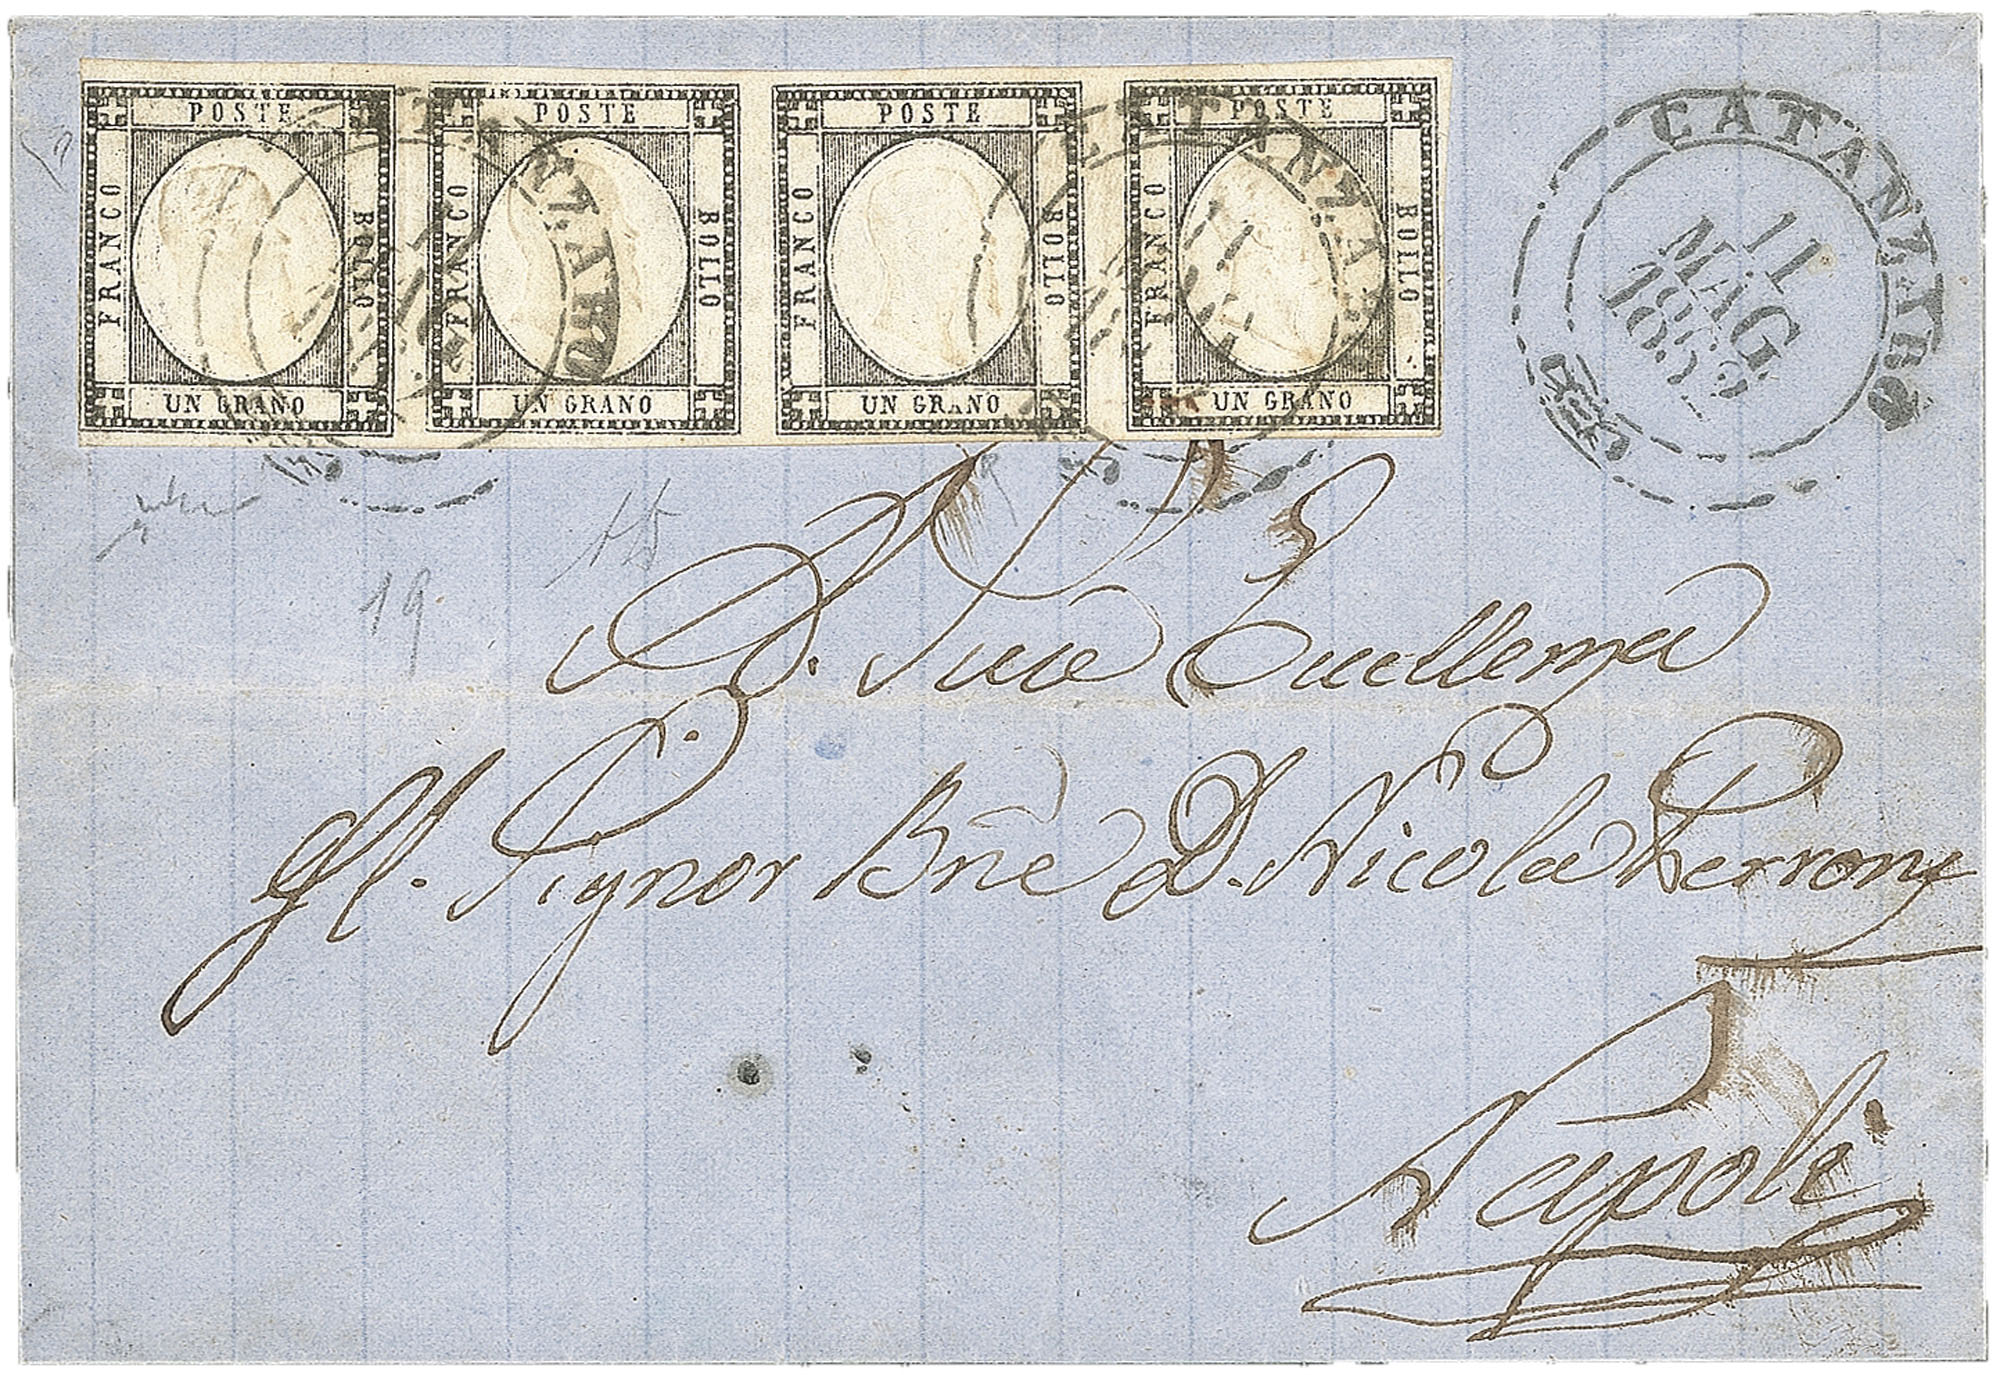 POSTE POSTE POSTE POSTE
FRANCO BOLLO FRANCO BOLLO FRANCO BOLLO FRANCO BOLLO
UN GRANO UN GRANO UN GRANO UN GRANO
CATANZARO
11
MAG
19
A. Sua Eccellenza
Al. Signor Bne D. Nicola Perrone
Napoli